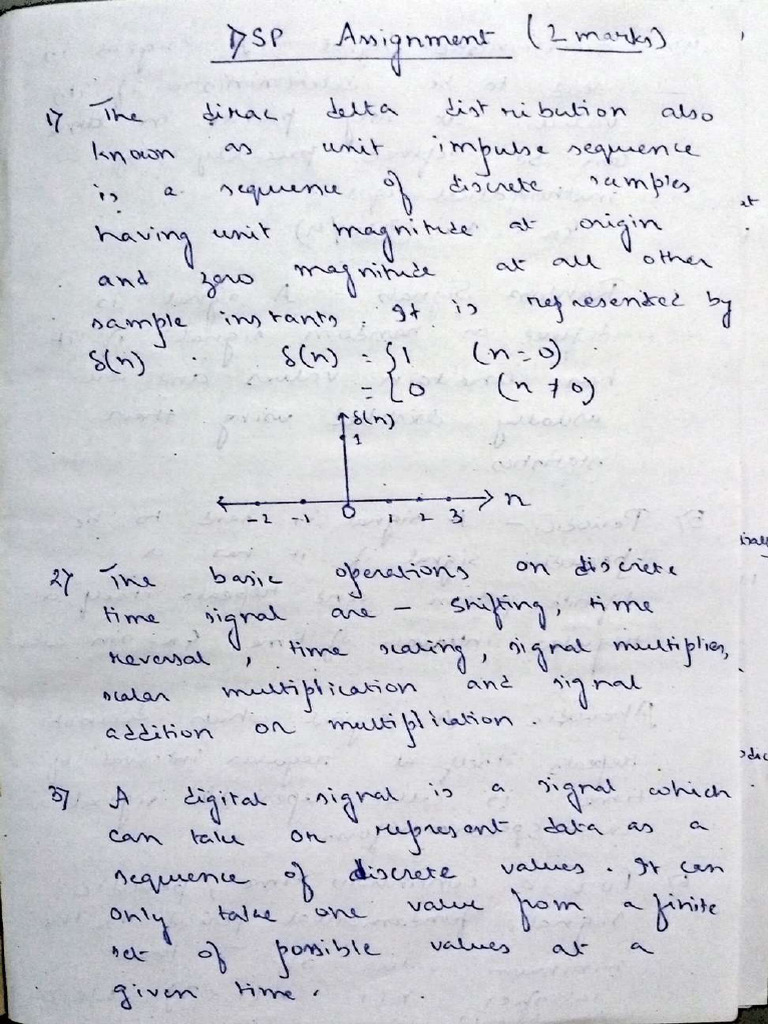 DSP Assignment (2 marks)
1) The dirac delta distribution also
known as unit impulse sequence
is a sequence of discrete samples
having unit magnitude at origin
and zero magnitude at all other
sample instants. It is represented by
δ(n) . δ(n) = {1 (n=0)
= {0 (n≠0)
δ(n)
1
-2 -1 0 1 2 3 n
2) The basic operations on discrete
time signal are - shifting, time
reversal, time scaling, signal multiplies,
scalar multiplication and signal
addition or multiplication.
3) A digital signal is a signal which
can take or represent data as a
sequence of discrete values. It can
only take one value from a finite
set of possible values at a
given time.